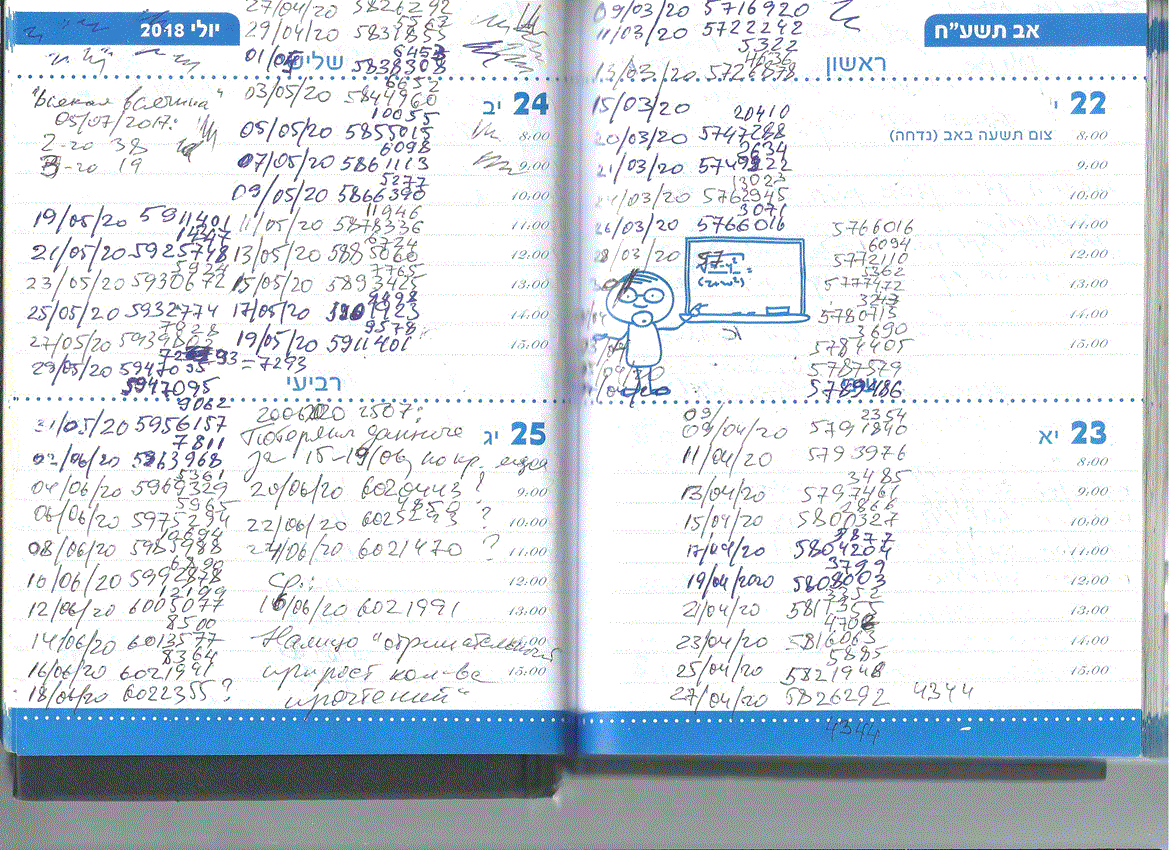 יולי 2018
27/04/20 5826292
5563
29/04/20 5831855
6453
01/05 5838308
שלישי
6652
03/05/20 5844960
24 יב
10055
05/05/20 5855015
6098
07/05/20 5861113
5277
09/05/20 5866390
11946
11/05/20 5878336
6724
13/05/20 5885060
15/05/20 5893425
17/05/20
9578
19/05/20 5911401
05/07/2017:
2-20 38
3-20 19
19/05/20 5911401
14347
21/05/20 5925748
5924
23/05/20 5930672
25/05/20 5932774
27/05/20
29/05/20
= 7293
5947095
8:00
9:00
10:00
11:00
12:00
13:00
14:00
15:00
רביעי
25 יג
9062
31/05/20 5956157
7811
02/06/20 5963968
5361
04/06/20 5969329
5965
06/06/20 5975294
10694
08/06/20 5985988
6890
10/06/20 5992878
12199
12/06/20 6005077
8500
14/06/20 6013577
8364
16/06/20 6021941
18/06/20 6022355?
2507:
Потеряны данные
за 15-19/06, по кр. мере
20/06/20 ?
22/06/20 6025293 ?
24/06/20 6021470 ?
Ср.:
16/06/20 6021991
Налицо "отрицательный
прирост кол-ва
прочтений"
9:00
10:00
11:00
12:00
13:00
14:00
15:00
אב תשע"ח
09/03/20 5716920
11/03/20 5722242
5322
13/03/20 5726878
ראשון
22 י
15/03/20
צום תשעה באב (נדחה)
20410
20/03/20 5747288
2634
21/03/20
13023
5762945
3071
26/03/20 5766016
28/03/20
5766016
6094
5772110
5362
5777472
3243
5780715
3690
5784405
5787579
5789486
8:00
9:00
10:00
11:00
12:00
13:00
14:00
15:00
23 יא
2354
09/04/20 5791840
11/04/20 5793976
3485
13/04/20 5797461
2866
15/04/20 5800327
3877
17/04/20 5804204
3799
19/04/2020 5808003
3352
21/04/20 5811355
4708
23/04/20 5816063
5885
25/04/20 5821948
27/04/20 5826292 4344
4344
8:00
9:00
10:00
11:00
12:00
13:00
14:00
15:00